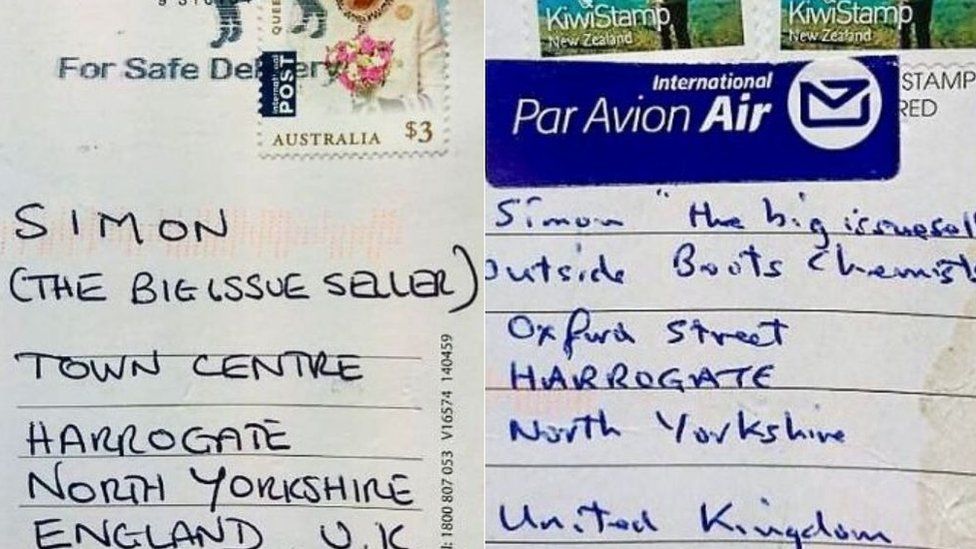 For Safe Delivery
QUEE
International
POST
AUSTRALIA $3
SIMON
(THE BIG ISSUE SELLER)
TOWN CENTRE
HARROGATE
NORTH YORKSHIRE
ENGLAND U.K
1800 807 053 V16574 140459
KiwiStamp
New Zealand
KiwiStamp
New Zealand
International
Par Avion Air
STAMP
RED
Simon "the big issue sell
outside Boots Chemist
Oxford Street
HARROGATE
North Yorkshire
United Kingdom